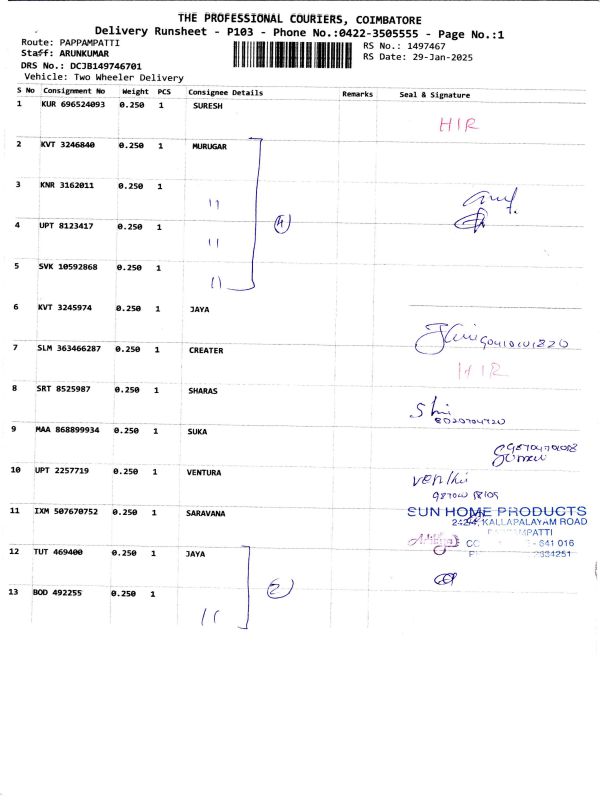 THE PROFESSIONAL COURIERS, COIMBATORE
Delivery Runsheet - P103 - Phone No.:0422-3505555 - Page No.:1
Route: PAPPAMPATTI
RS No.: 1497467
Staff: ARUNKUMAR
RS Date: 29-Jan-2025
DRS No.: DCJB149746701
Vehicle: Two Wheeler Delivery
S No Consignment No Weight PCS Consignee Details Remarks Seal & Signature
1 KUR 696524093 0.250 1 SURESH
HIR
2 KVT 3246840 0.250 1 MURUGAR
3 KNR 3162011 0.250 1
11
4 UPT 8123417 0.250 1
(4)
11
5 SVK 10592868 0.250 1
11
6 KVT 3245974 0.250 1 JAYA
7 SLM 363466287 0.250 1 CREATER
HIR
8 SRT 8525987 0.250 1 SHARAS
9 MAA 868899934 0.250 1 SUKA
10 UPT 2257719 0.250 1 VENTURA
11 IXM 507670752 0.250 1 SARAVANA
SUN HOME PRODUCTS
KALLAPALAYAM ROAD
641 016
12 TUT 469400 0.250 1 JAYA
13 BOD 492255 0.250 1
(2)
11